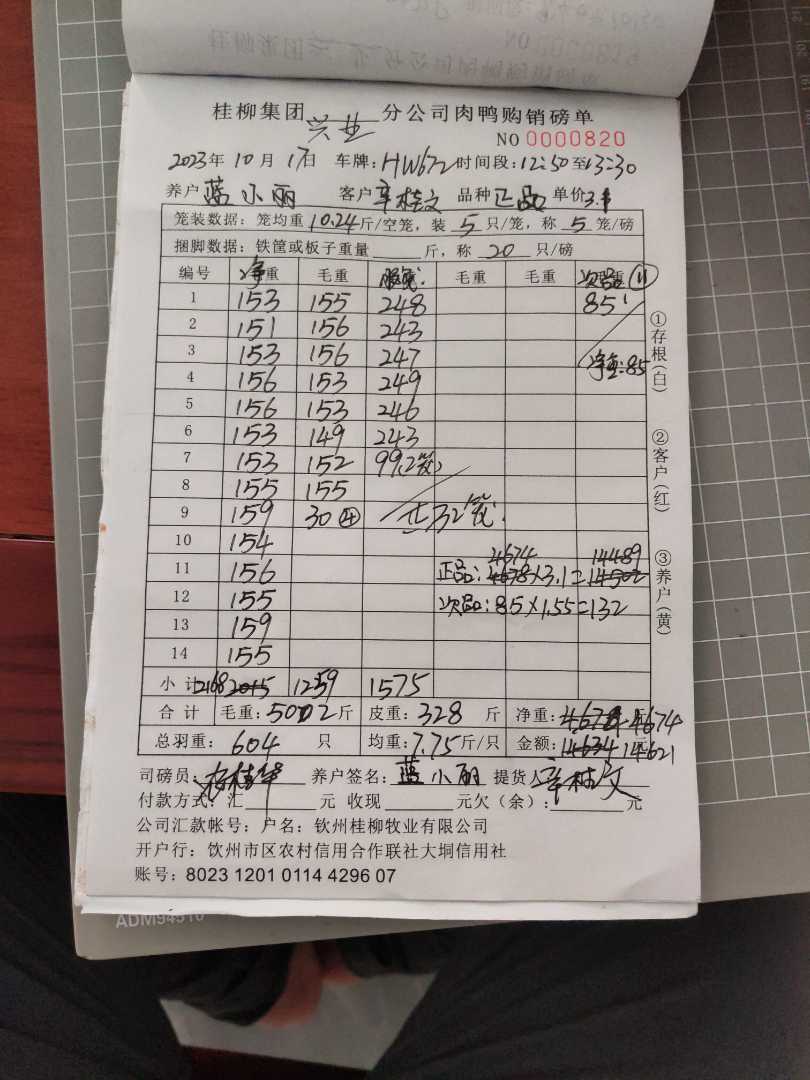 桂柳集团 兴业 分公司肉鸭购销磅单
NO 0000820
2023年 10月 17日 车牌:HW672 时间段:12:50至13:30
养户 蓝小丽 客户 辛桂文 品种 正品 单价3.1
笼装数据:笼均重 10.24 斤/空笼,装 5 只/笼,称 5 笼/磅
捆脚数据:铁筐或板子重量 斤,称 20 只/磅
编号 净重 毛重 毛重 毛重 次品 11
1 153 155 248 85
2 151 156 243
3 153 156 247 净重:85
4 156 153 249
5 156 153 246
6 153 149 243
7 153 152 99(2笼)
8 155 155
9 159 30④ 共32笼.
10 154
4674 14489
11 156 正品:4678×3.1=14502
12 155 次品:85×1.55=132
13 159
14 155
小计 2168 2015 1259 1575
合计 毛重:5002斤 皮重:328 斤 净重:4678 4674
总羽重: 604 只 均重:7.75斤/只 金额:14634 14621
司磅员: 养户签名:蓝小丽 提货人
付款方式:汇 元 收现 元欠(余): 元
公司汇款帐号:户名:钦州桂柳牧业有限公司
开户行:钦州市区农村信用合作联社大垌信用社
账号:8023 1201 0114 4296 07
①存根(白)
②客户(红)
③养户(黄)
ADM94510